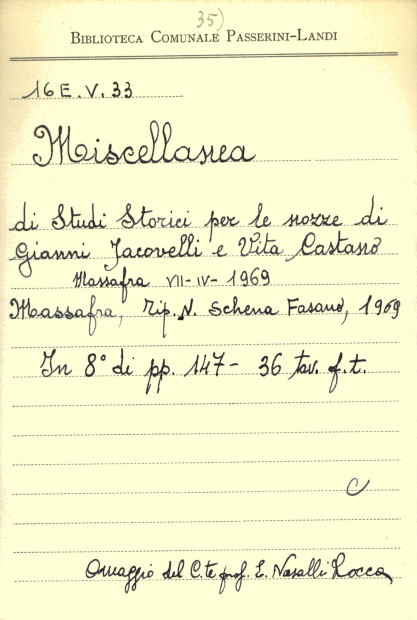 35)
BIBLIOTECA COMUNALE PASSERINI-LANDI
16 E. V. 33
Miscellanea
di Studi Storici per le nozze di
Gianni Jacovelli e Vita Castano
Massafra VII-IV-1969
Massafra, Tip. N. Schena Fasano, 1969
In 8° di pp. 147 - 36 tav. f. t.
C
Omaggio del C.te prof. E. Nasalli Rocca